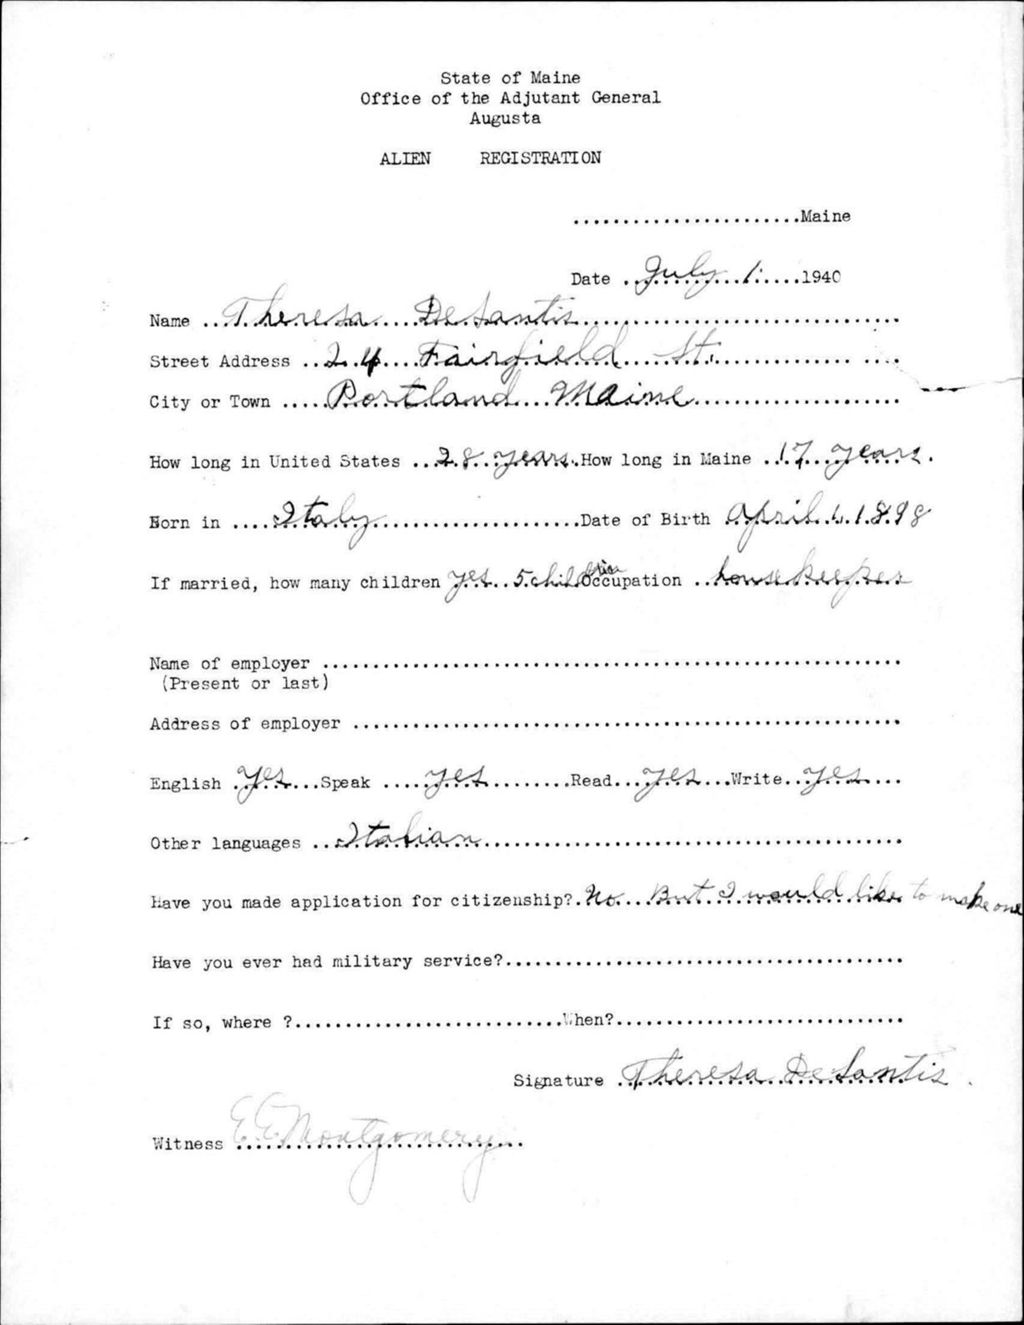 State of Maine
Office of the Adjutant General
Augusta
ALIEN REGISTRATION
.......................Maine
Date ..July 1.....1940
Name ...Theresa DeSantis...
Street Address ...24 Fairfield St....
City or Town .....Portland Maine...
How long in United States ...28 years..How long in Maine ..17 years.
Born in ....Italy...Date of Birth .April 1898
If married, how many children yes 5 children Occupation ..housekeeper
Name of employer ...
(Present or last)
Address of employer ...
English .Yes....Speak .....yes.........Read...yes....Write..yes....
Other languages ..Italian...
Have you made application for citizenship?.No. But I would like to make one
Have you ever had military service?...
If so, where ?...When?...
Signature .Theresa DeSantis.
Witness E E Montgomery